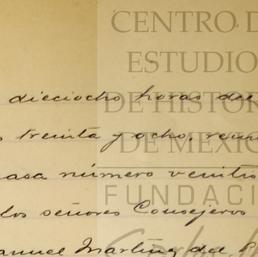 CENTRO DE
ESTUDIOS
DE HISTORIA
DE MEXICO
FUNDACI
dieciocho horas del
treinta y ocho, reuni
casa número veinti
los señores Consejeros
anuel Martínez del